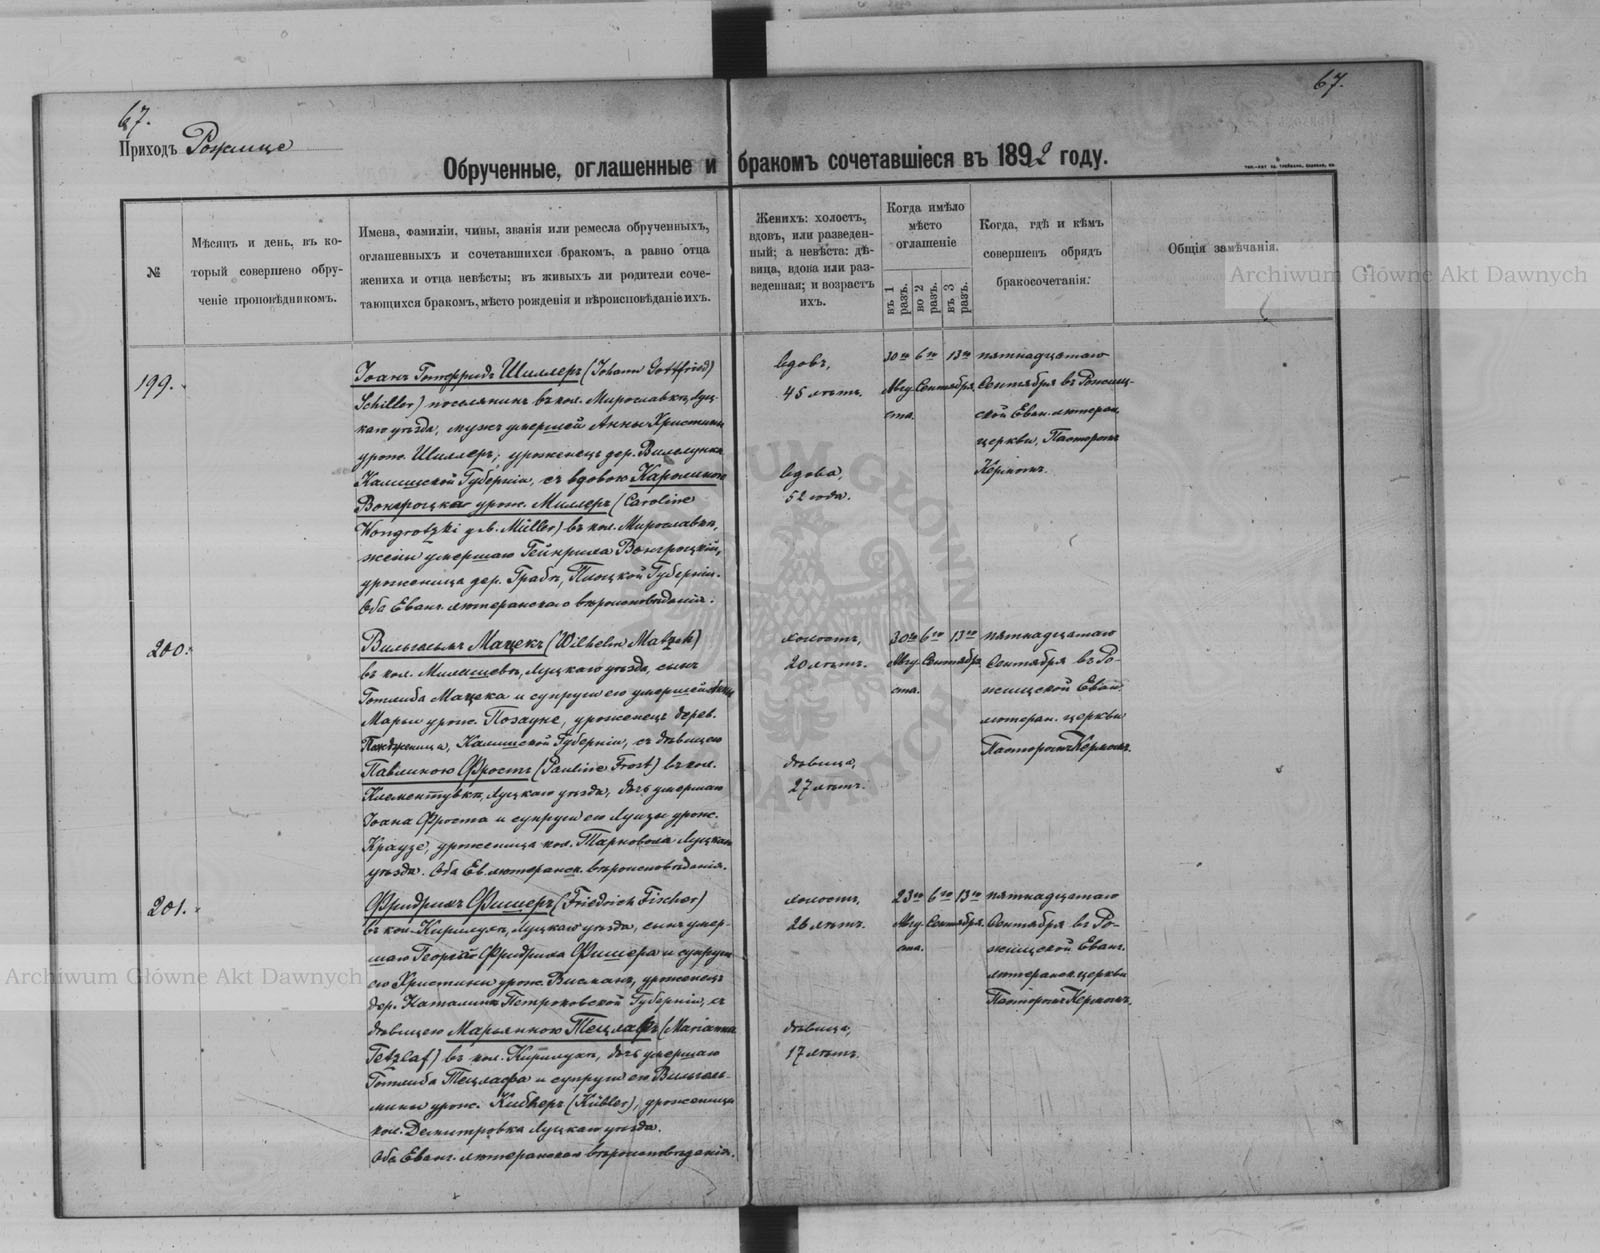 67.
67.
Приходъ Рожище
Обрученные, оглашенные и бракомъ сочетавшіеся въ 1892 году.
№
Мѣсяцъ и день, въ ко-
торый совершено обру-
ченіе проповѣдникомъ.
Имена, фамиліи, чины, званія или ремесла обрученныхъ,
оглашенныхъ и сочетавшихся бракомъ, а равно отца
жениха и отца невѣсты; въ живыхъ ли родители соче-
тающихся бракомъ, мѣсто рожденія и вѣроисповѣданіе ихъ.
Женихъ: холостъ,
вдовъ, или разведен-
ный; а невѣста: дѣ-
вица, вдова или раз-
веденная; и возрастъ
ихъ.
Когда имѣло
мѣсто
оглашеніе
въ 1 разъ.
во 2 разъ.
въ 3 разъ.
Когда, гдѣ и кѣмъ
совершенъ обрядъ
бракосочетанія.
Общія замѣчанія.
Archiwum Główne Akt Dawnych
199.
Іоанъ Готфридъ Шиллеръ (Johann Gottfried
Schiller) поселянинъ въ кол. Мирославкѣ, Луц-
каго уѣзда, мужъ умершей Анны Христины
урож. Шиллеръ; уроженецъ дер.
Калишской Губерніи, съ вдовою Каролиною
Вонгроцкая урож. Миллеръ (Caroline
Wongrotzki geb. Müller) въ кол. Мирославка,
жены умершаго Гейнриха Вонгроцкій,
уроженица дер. Грабѣ, Плоцкой Губерніи.
Оба Еванг. лютеранскаго вѣроисповѣданія.
вдовъ,
45 лѣтъ.
вдова,
52 года.
30го 6го 13го
Авгу- Сентября.
ста.
пятнадцатаго
Сентября въ Рожищ-
ской Еван. лютеран.
церкви, Пасторомъ
Кермомъ.
200.
Вильгельмъ Мацекъ (Wilhelm Matzek)
въ кол. Милашевѣ, Луцкаго уѣзда, сынъ
Готлиба Мацека и супруги его умершей Анны
Марьи урож. Позауне, уроженецъ дерев.
Калишской Губерніи, съ дѣвицею
Павлиною Фростъ (Pauline Frost) въ кол.
Клементувкѣ, Луцкаго уѣзда, дочь умершаго
Іоана Фроста и супруги его Луизы урож.
Краузе, уроженица кол. Тарновола Луцкаго
уѣзда. Оба Ев. лютеранск. вѣроисповѣданія.
холостъ,
20 лѣтъ.
дѣвица,
27 лѣтъ.
30го 6го 13го
Авгу- Сентября
ста.
пятнадцатаго
Сентября въ Ро-
жищской Еван.
лютеран. церкви
Пасторомъ Кермомъ.
201.
Фридрихъ Фишеръ (Friedrich Fischer)
въ кол. Кирилухѣ, Луцкаго уѣзда, сынъ умер-
шаго Георгій Фридриха Фишера и супруги
его Христины урож. Висманъ, уроженецъ
дер. Каталинѣ Петроковской Губерніи, съ
дѣвицею Марьянною Тецлафъ (Marianna
Tetzlaf) въ кол. Кирилухѣ, дочь умершаго
Готлиба Тецлафа и супруги его Вильгель-
мины урож. Киблеръ (Kübler), уроженица
кол. Дмитровка Луцкаго уѣзда.
Оба Еванг. лютеранскаго вѣроисповѣданія.
холостъ,
26 лѣтъ.
дѣвица,
17 лѣтъ.
23го 6го 13го
Авгу- Сентября.
ста.
пятнадцатаго
Сентября въ Ро-
жищской Еванг.
лютеранск. церкви
Пасторомъ Кермомъ.
Archiwum Główne Akt Dawnych